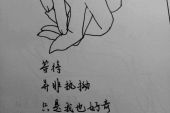 等待
并非执拗
只是我也好奇